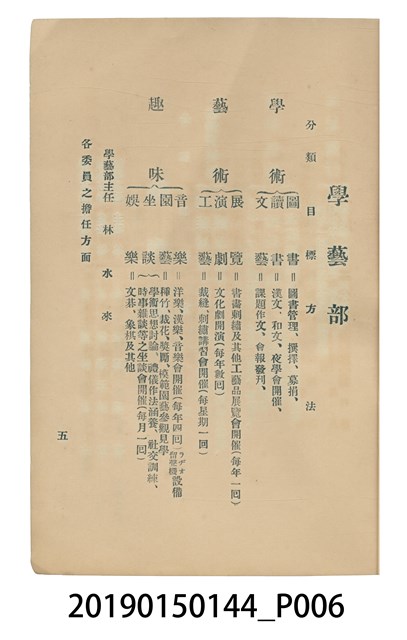 學藝部
分類目標方法
學術
圖書＝圖書管理、選擇、募捐、
讀書＝漢文、和文、夜學會開催、
文藝＝課題作文、會報發刊、
藝術
展覽＝書畫刺繡及其他工藝品展覽會開催(每年一回)
演劇＝文化劇開演(每年數回)
工藝＝裁縫、刺繡講習會開催(每星期一回)
趣味
音樂＝洋樂、漢樂、音樂會開催(每年四回)ラヂオ蓄音機設備
園藝＝種竹、栽花、獎勵、模範園藝參觀見學
坐談＝學術思想討論、禮儀作法涵養、社交訓練、
時事雜談等之坐談會開催(每月一回)
娛樂＝文碁、象棋及其他
學藝部主任 林水來
各委員之擔任方面
五
20190150144_P006